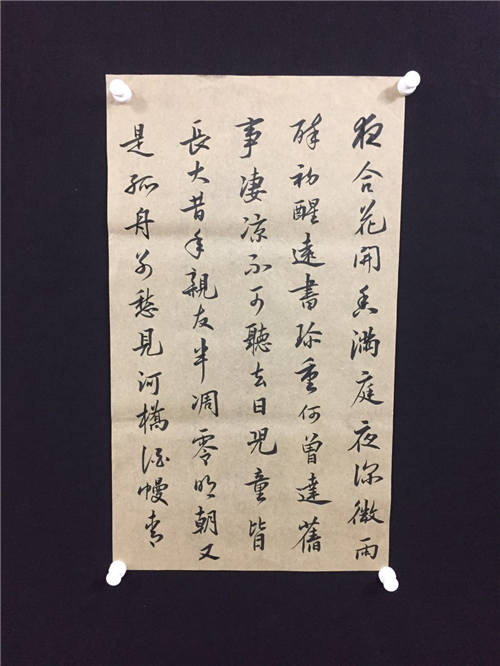 夜合花開香滿庭夜深微雨
醉初醒遠書珍重何曾達舊
事淒涼不可聽去日兒童皆
長大昔年親友半凋零明朝又
是孤舟別愁見河橋酒幔青